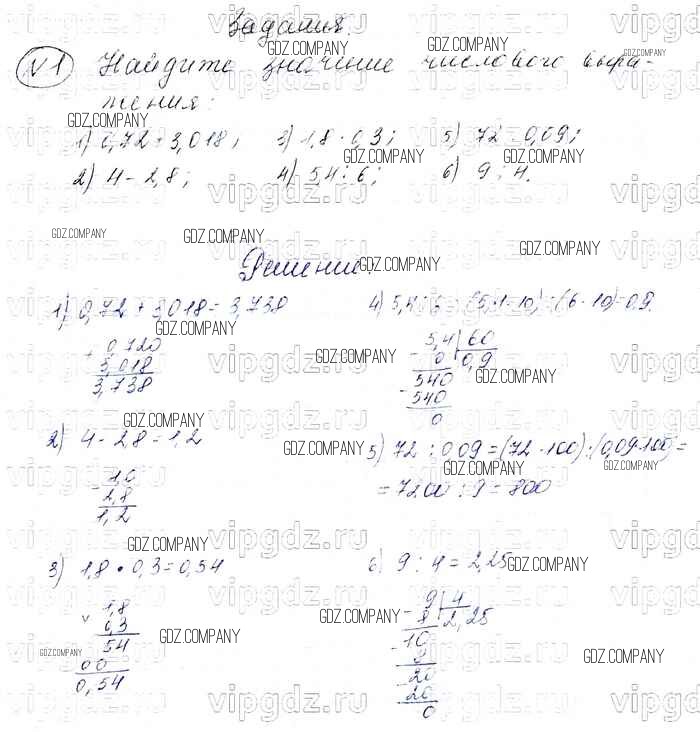 Задания.
№1 Найдите значение числового выра-
жения:
1) 0,72 + 3,018; 3) 1,8 · 0,3; 5) 72 : 0,09;
2) 4 - 2,8; 4) 5,4 : 6; 6) 9 : 4.
Решение.
1) 0,72 + 3,018 = 3,738
+ 0,720
3,018
3,738
2) 4 - 2,8 = 1,2
- 4,0
2,8
1,2
3) 1,8 · 0,3 = 0,54
1,8
0,3
54
00
0,54
4) 5,4 : 6 = (5,4 · 10) : (6 · 10) = 0,9.
5,4 | 60
- 0 | 0,9
540
- 540
0
5) 72 : 0,09 = (72 · 100) : (0,09 · 100) =
= 7200 : 9 = 800
6) 9 : 4 = 2,25
9 | 4
- 8 | 2,25
10
- 8
20
- 20
0
GDZ.COMPANY
vipgdz.ru